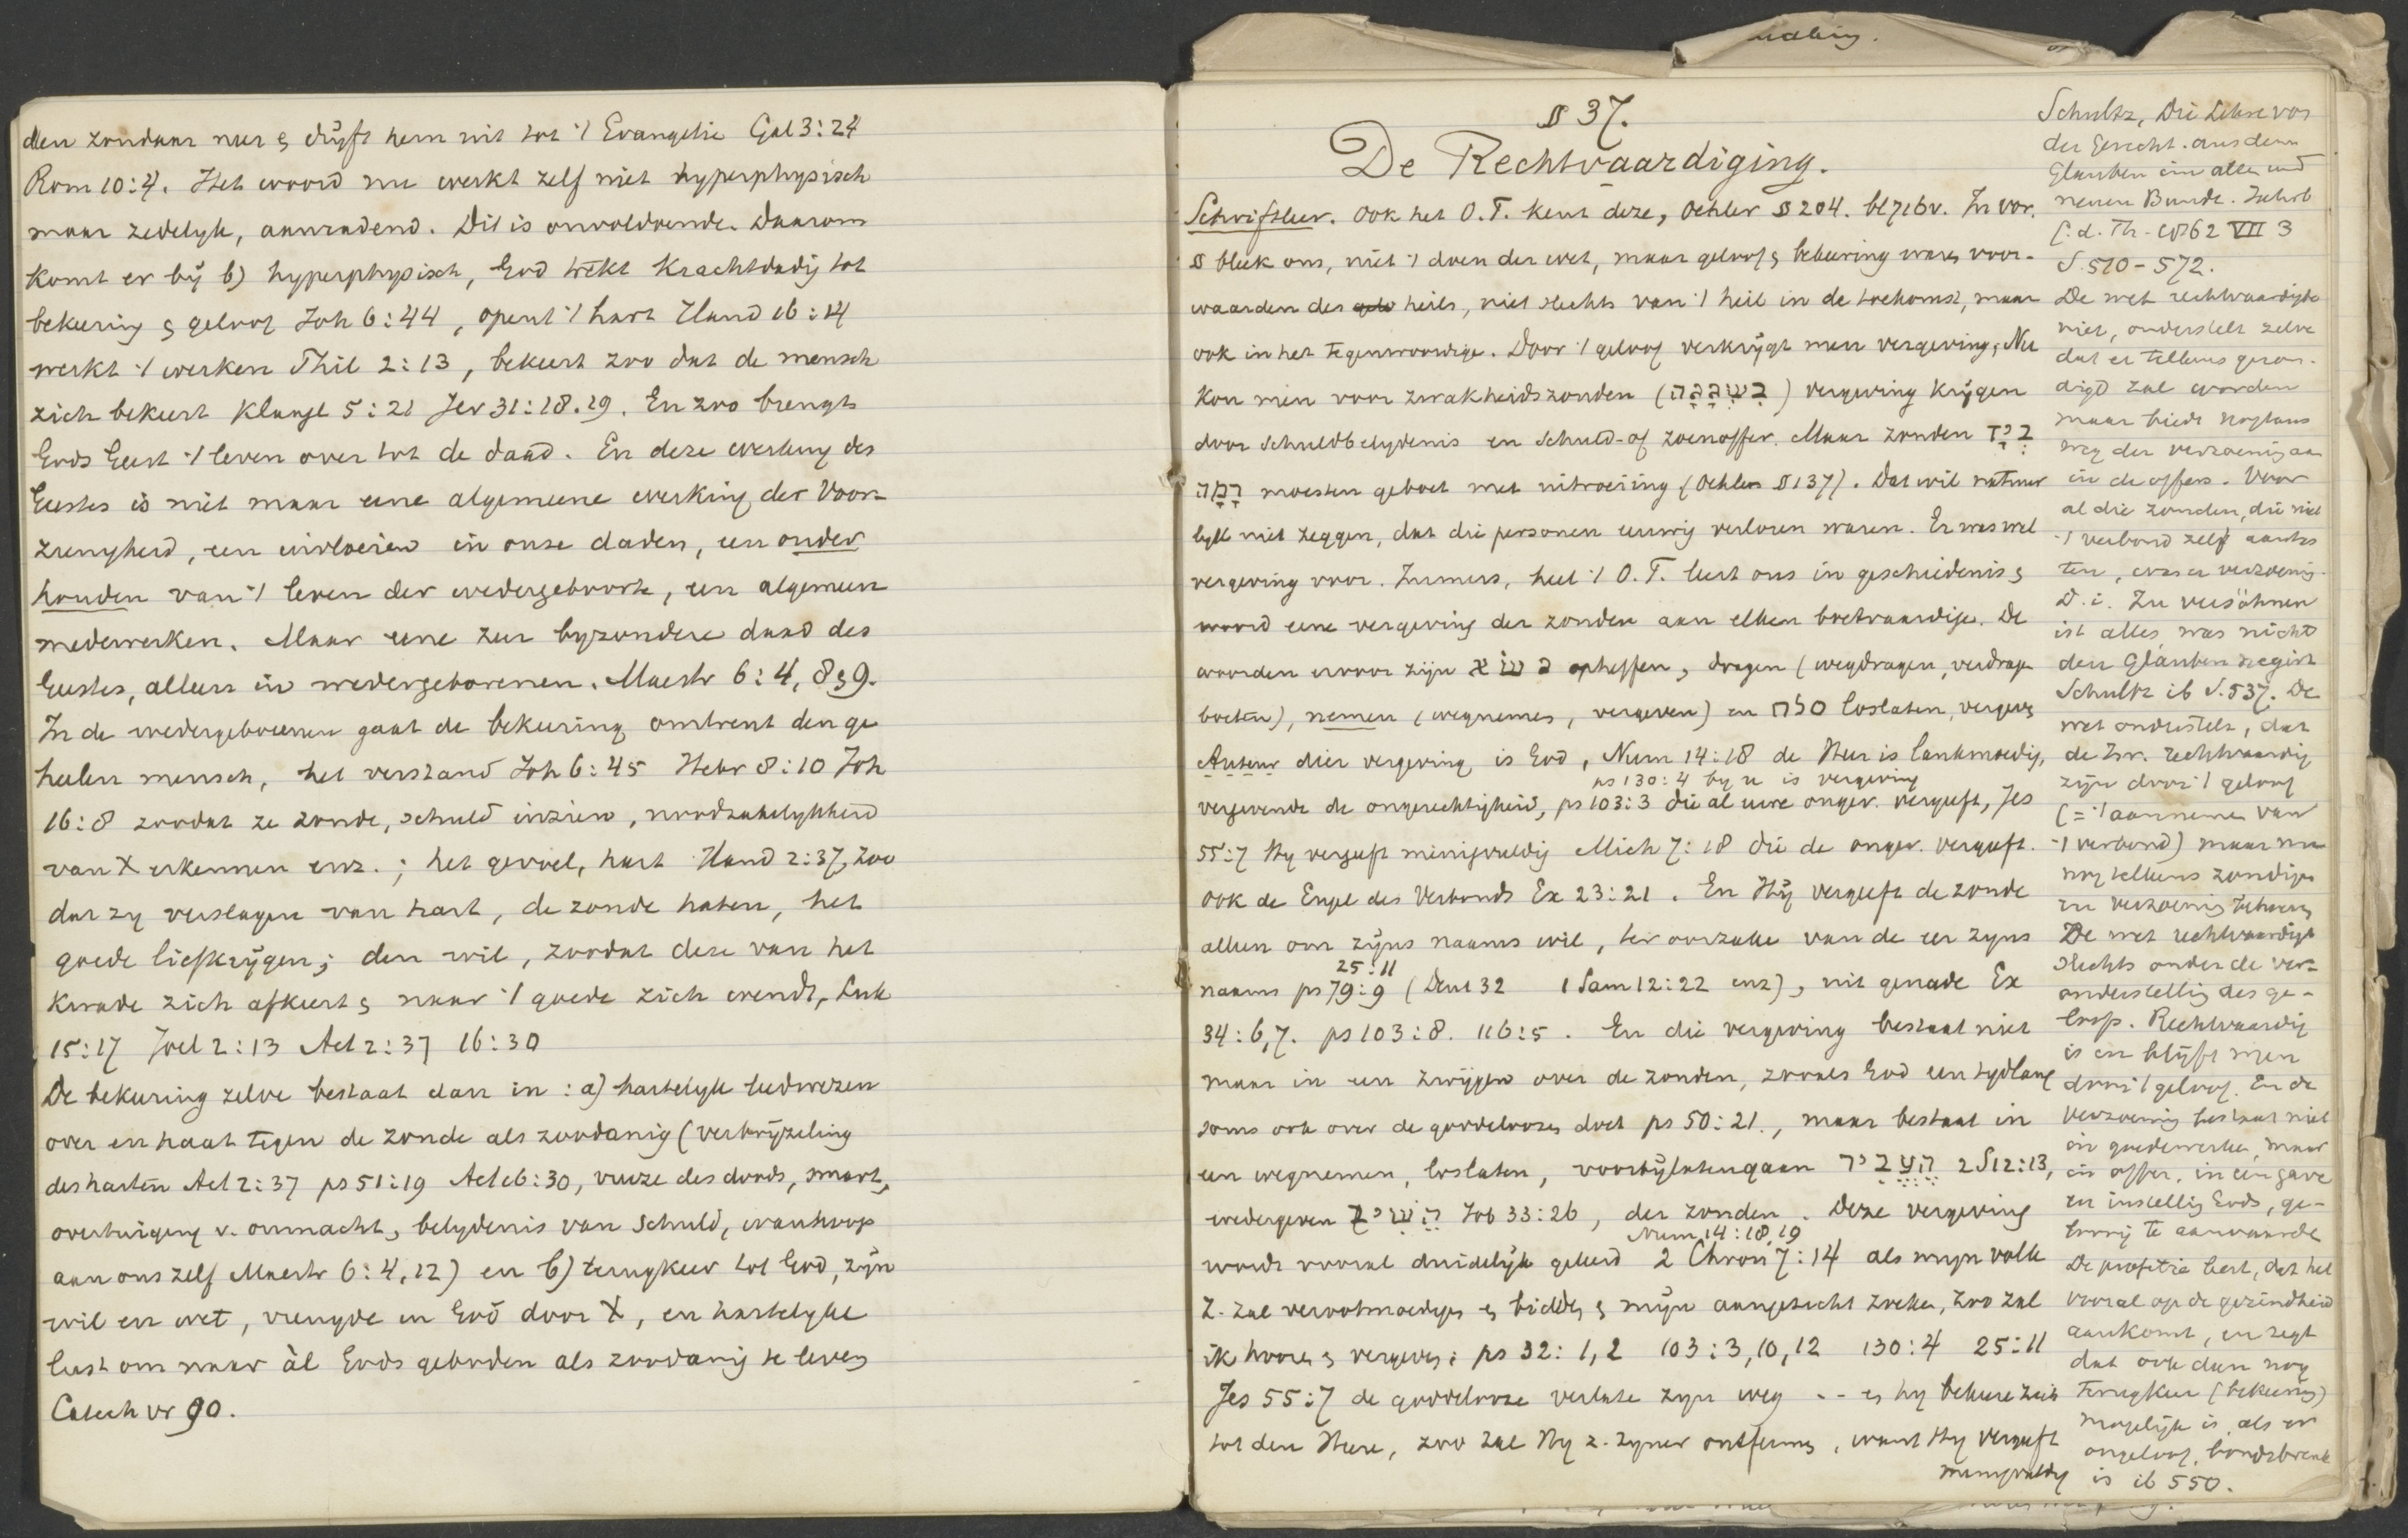 den zondaar neer & drijft hem uit tot 't Evangelie Gal 3:24
Rom 10:4. Het woord nu werkt zelf niet hyperphysisch
maar zedelyk, aanradend. Dit is onvoldoende. Daarom
komt er bij b) hyperphysisch, God wekt krachtdadig tot
bekeering & geloof Joh 6:44, opent 't hart Hand 16:14
werkt 't werken Phil 2:13, bekeert zoo dat de mensch
zich bekeert Klaagl 5:21 Jer 31:18.19. En zoo brengt
Gods Geest 't leven over tot de daad. En deze werking des
Geestes is niet maar eene algemeene werking der Voor-
zienigheid, een invloeien in onze daden, een onder
houden van 't leven der wedergeboorte, een algemeen
medewerken. Maar eene zeer byzondere daad des
Geestes, alleen in wedergeborenen. Maestr 6:4, 8 & 9.
In de wedergeborenen gaat de bekeering omtrent den ge
heelen mensch, het verstand Joh 6:45 Hebr 8:10 Joh
16:8 zoodat ze zonde, schuld inzien, noodzakelykheid
van X erkennen enz.; het gevoel, hart Hand 2:37, zoo
dat zy verslagen van hart, de zonde haten, het
goede liefkrijgen; den wil, zoodat deze van het
kwade zich afkeert & naar 't goede zich wendt, Luk
15:17 Joel 2:13 Act 2:37 16:30
De bekeering zelve bestaat dan in: a) hartelyk leedwezen
over en haat tegen de zonde als zoodanig (verbrijzeling
des harten Act 2:37 ps 51:19 Act 16:30, vreeze des doods, smart,
overtuiging v. onmacht, belydenis van schuld, wanhoop
aan ons zelf Maestr 6:4, 12) en b) terugkeer tot God, zijn
wil en wet, vreugde in God door X, en hartelyke
lust om naar àl Gods geboden als zoodanig te leven
Catech vr 90.
§ 37.
De Rechtvaardiging.
Schriftleer. Ook het O.T. kent deze, Oehler § 204. blz 716v. In vor.
§ bleek ons, niet 't doen der wet, maar geloof & bekeering waren voor-
waarden des heils, niet slechts van 't heil in de toekomst, maar
ook in het tegenwoordige. Door 't geloof verkrijgt men vergeving. Nu
kon men voor zwakheidszonden (בִּשְׁגָגָה) vergeving krijgen
door schuldbelydenis en schuld- of zoenoffer. Maar zonden בְּיָד
רָמָה moesten geboet met uitroeiing (Oehler § 137). Dat wil natuur
lyk niet zeggen, dat die personen eeuwig verloren waren. Er was wel
vergeving voor. Immers, heel 't O.T. leert ons in geschiedenis &
woord eene vergeving der zonden aan elken boetvaardige. De
woorden ervoor zijn נשׂא opheffen, dragen (wegdragen, verdragen
boeten), nemen (wegnemen, vergeven) en סלח loslaten, vergeven
Auteur dier vergeving is God, Num 14:18 de Heer is lankmoedig,
ps 130:4 by u is vergeving
vergevende de ongerechtigheid, ps 103:3 die al uwe onger. vergeeft, Jes
55:7 Hy vergeeft menigvuldig Mich 7:18 die de onger. vergeeft.
Ook de Engel des Verbonds Ex 23:21. En Hij vergeeft de zonde
alleen om zijns naams wil, ter oorzake van de eer zyns
25:11
naams ps 79:9 (Deut 32 1 Sam 12:22 enz), uit genade Ex
34:6,7. ps 103:8. 116:5. En die vergeving bestaat niet
maar in een zwijgen over de zonden, zooals God een tydlang
soms ook over de goddeloozen doet ps 50:21., maar bestaat in
een wegnemen, loslaten, voorbijlatengaan הֶעֱבִיר 2 S 12:13,
wedergeven Job 33:26, der zonden. Deze vergeving
Num 14:18,19
wordt vooral duidelijk geleerd 2 Chron 7:14 als myn volk
z. zal verootmoedigen & bidden & mijn aangezicht zoeken, zoo zal
ik hooren & vergeven; ps 32:1,2 103:3,10,12 130:4 25:11
Jes 55:7 de goddelooze verlate zyn weg -- & hy bekeere zich
tot den Heere, zoo zal Hy z. zyner ontfermen, want Hy vergeeft
menigvuldig
Schultz, Die Lehre von
der Gerecht. aus dem
Glauben im alten und
neuen Bunde. Jahrb
f. d. Th. 1862 VII 3
S. 510-572.
De wet rechtvaardigde
niet, onderstelt zelve
dat er telkens gezon-
digd zal worden
maar biedt nogtans
weg der verzoening aan
in de offers. Voor
al die zonden, die niet
't verbond zelf aantas
ten, was er verzoening.
D.i. Zu versöhnen
ist alles was nicht
den Glauben negirt
Schultz ib S. 537. De
wet onderstelt, dat
de Isr. rechtvaardig
zijn door 't geloof
(= 't aannemen van
't verbond) maar nu
nog telkens zondigen
en verzoening behoeven
De wet rechtvaardigt
slechts onder de ver-
onderstelling des ge-
loofs. Rechtvaardig
is en blijft men
door 't geloof. En de
verzoening bestaat niet
in goede werken, maar
in offer, in een gave
en instelling Gods, ge-
loovig te aanvaarden
De profetie leert, dat het
vooral op de gezindheid
aankomt, en zegt
dat ook dan nog
terugkeer (bekeering)
mogelijk is, als er
ongeloof, bondsbreuk
is ib 550.